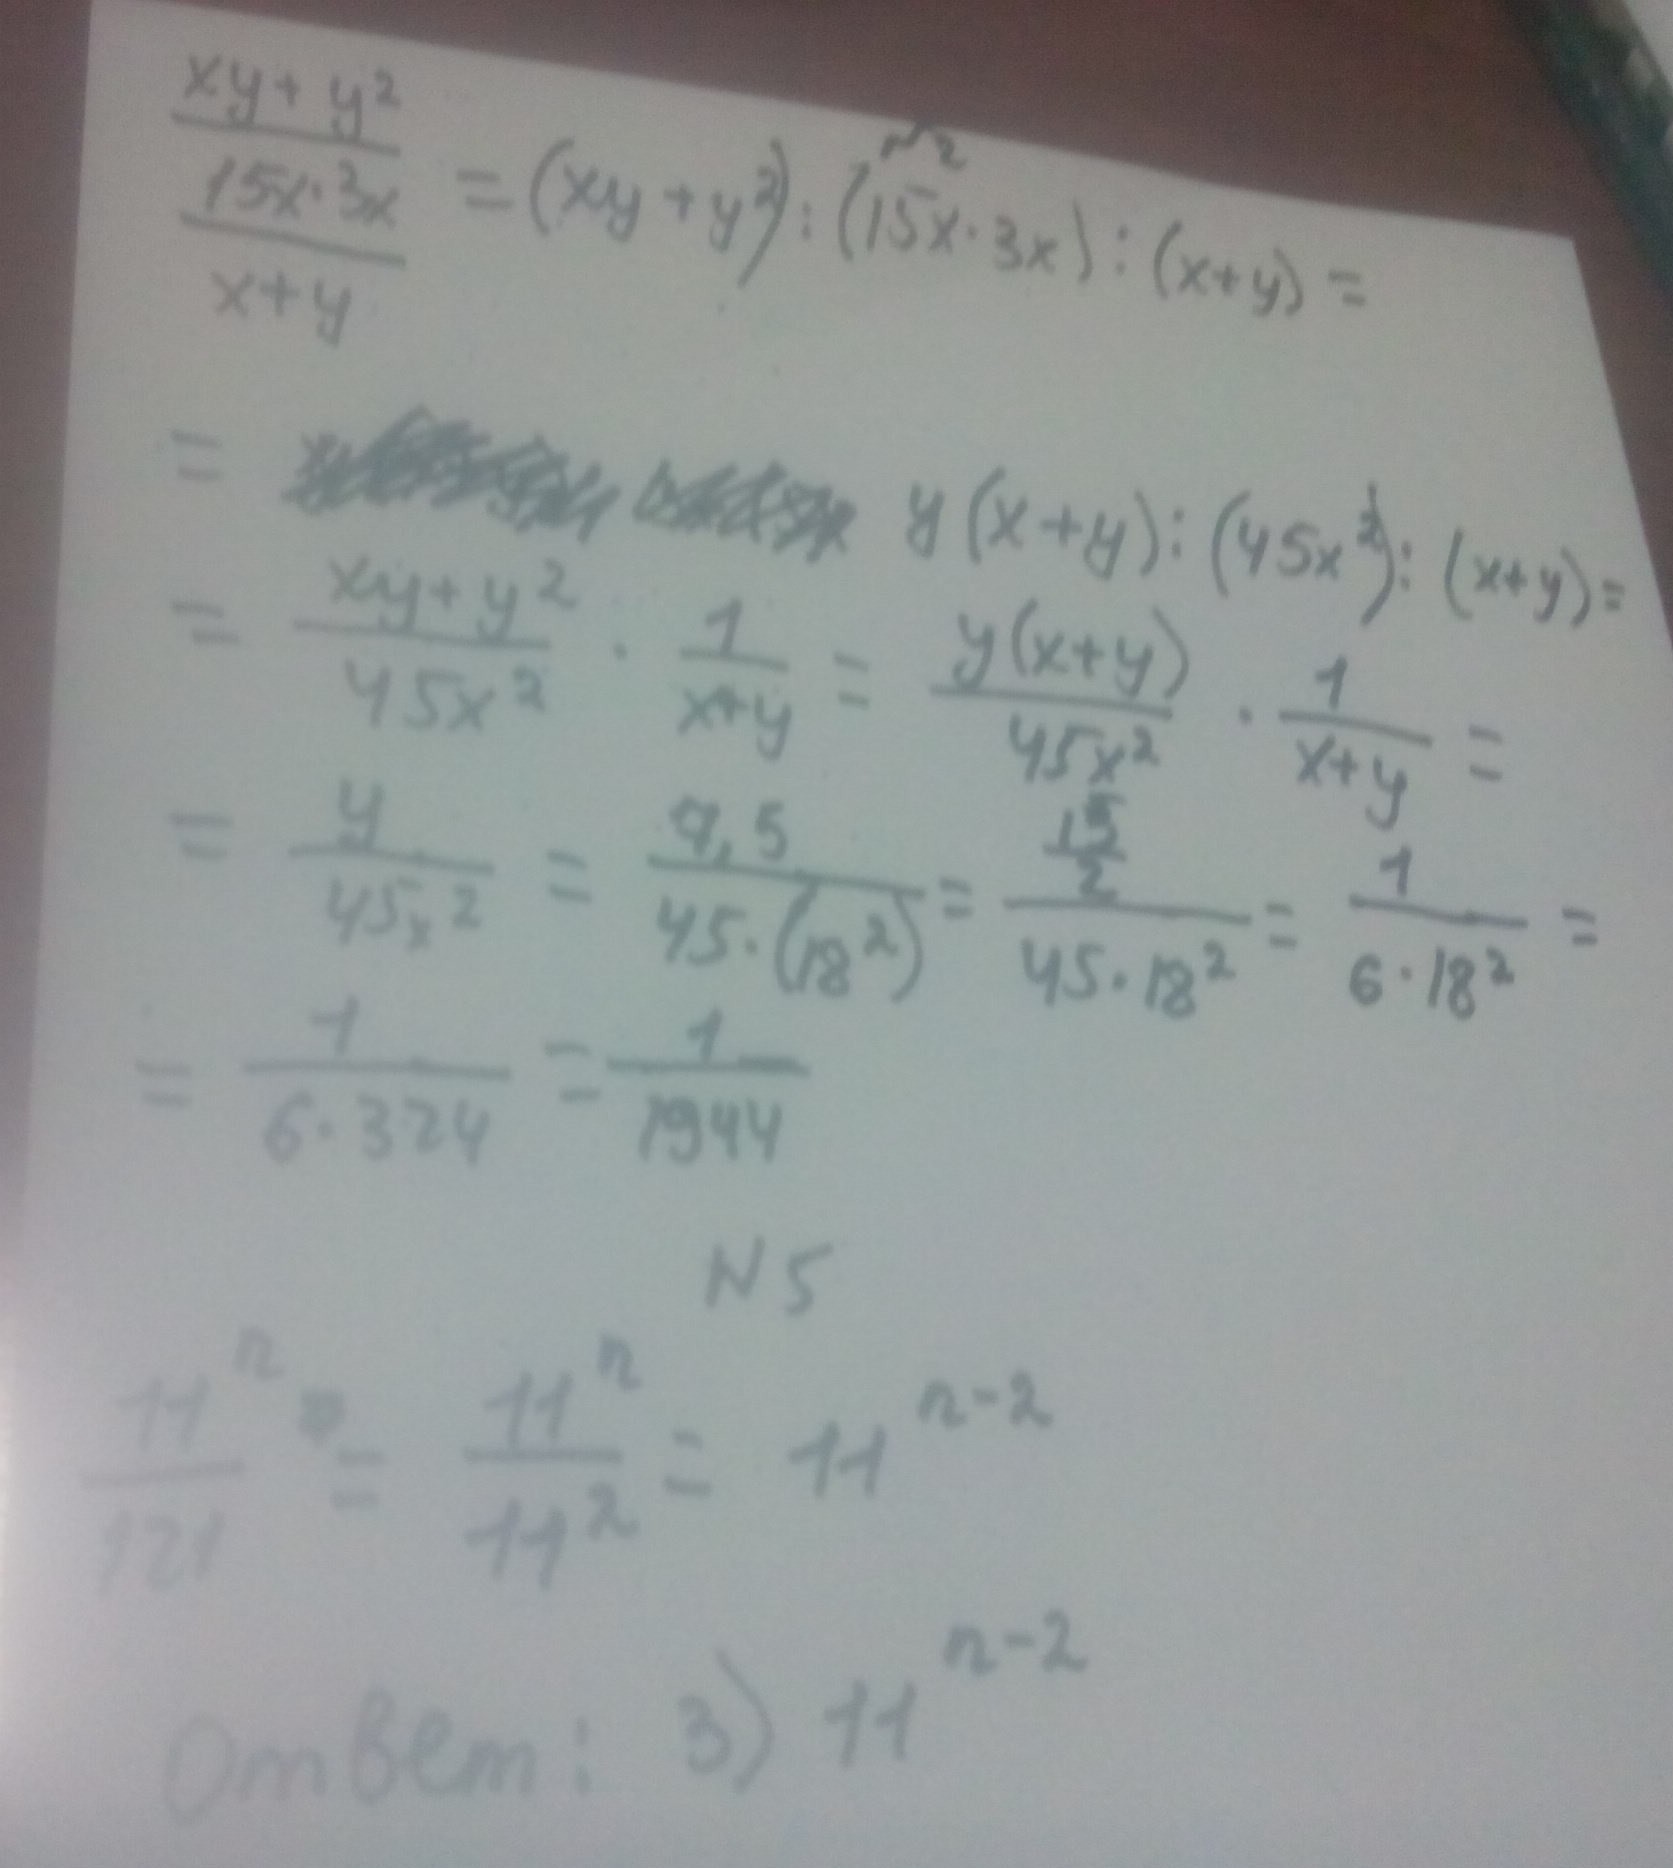 (xy + y²)/(15x · 3x)/(x+y) = (xy + y²) : (15x · 3x) : (x+y) =
= y(x+y) : (45x²) : (x+y) =
= (xy + y²)/(45x²) · 1/(x+y) = y(x+y)/(45x²) · 1/(x+y) =
= y/(45x²) = 7,5/(45·(18²)) = (15/2)/(45·18²) = 1/(6·18²) =
= 1/(6·324) = 1/1944
N5
11ⁿ/121 = 11ⁿ/11² = 11ⁿ⁻²
Ответ: 3) 11ⁿ⁻²